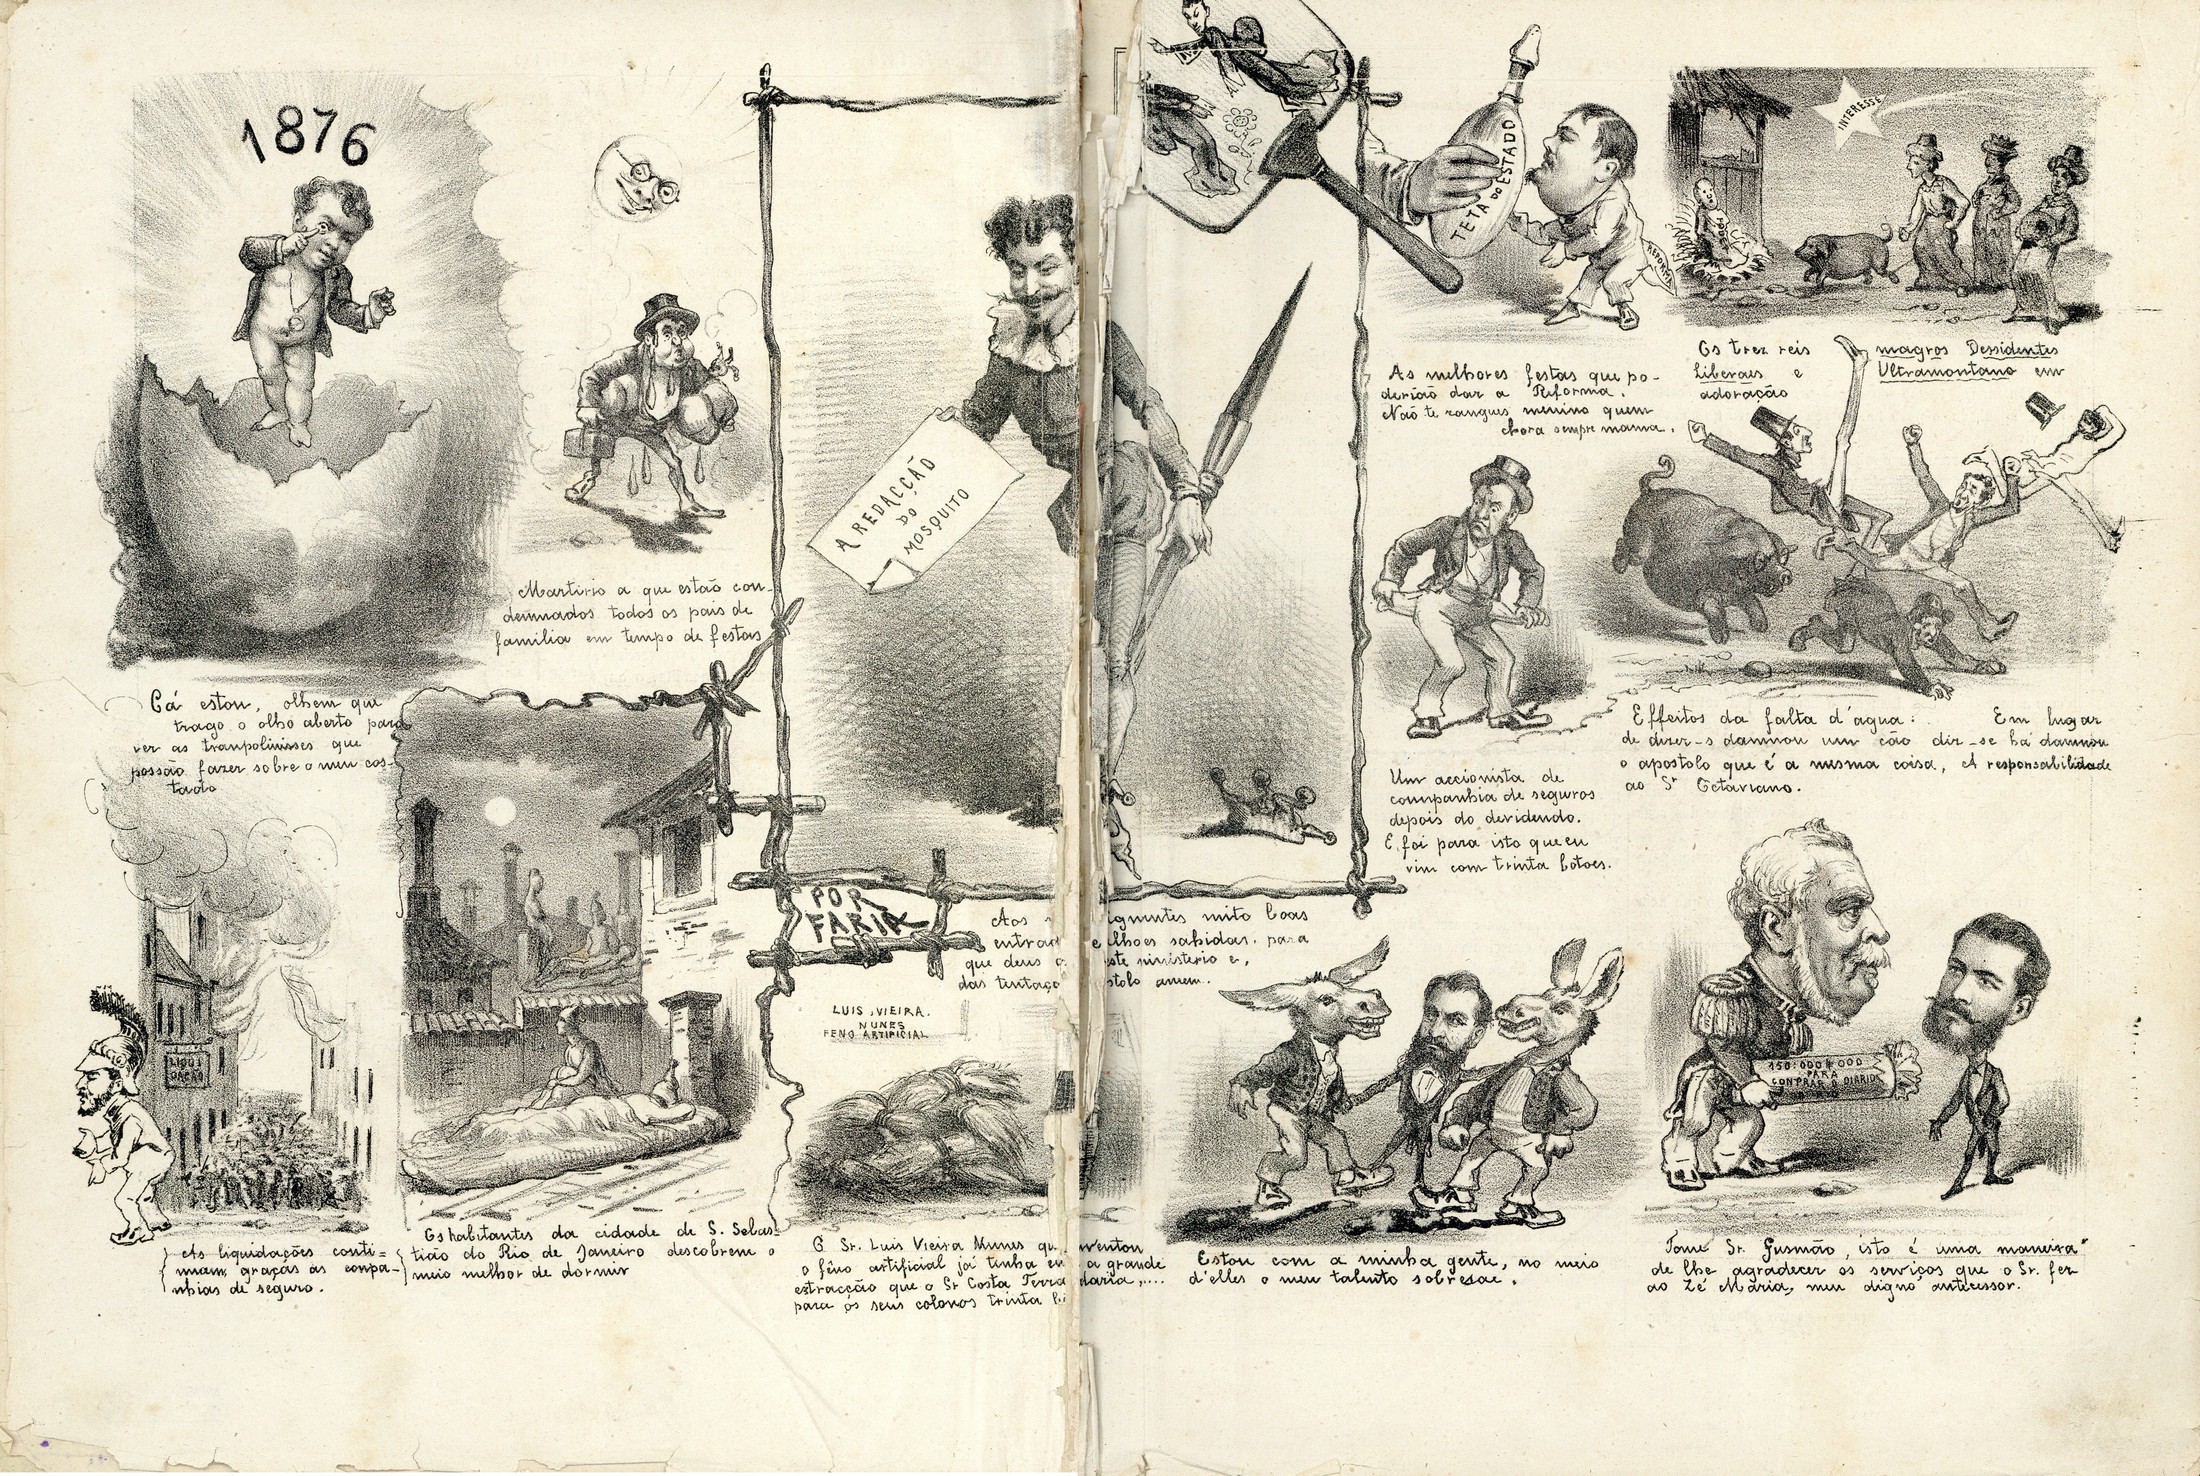 1876
Cá estou, olhem que
trago o olho aberto para
ver as tranpolinisses que
possão fazer sobre o meu cos-
tado
Martirio a que estão con-
demnados todos os pais de
familia em tempo de festas
LIQUI
DAÇÃO
As liquidações conti=
nuam, graças às conpa-
nhias de seguro.
Os habitantes da cidade de S. Sebas-
tião do Rio de Janeiro descobrem o
meio melhor de dormir
A REDACÇÃO
DO
MOSQUITO
POR
FARIA
Aos
gnantes mito boas
entrad
e lhoes sahidas. para
que deus
este ministerio e,
das tentaço
stolo amem.
LUIS VIEIRA.
NUNES
FENO ARTIFICIAL
O Sr. Luis Vieira Nunes qu
nventou
o fêno artificial já tinha
a grande
estracção que o Sr Costa Terra
daria,....
para os seus colonos trinta
TETA DO ESTADO
REFORMA
As milhores festas que po-
derião dar a Reforma.
Não te zangues menino quem
chora sempre mama.
INTERESSE
Os trez reis magros Dessidentes
Liberaes e Ultramontano em
adoração
Um accionista de
companhia de seguros
depois do devidendo.
E foi para isto que eu
vim com trinta botoes.
Effeitos da falta d'agua: Em lugar
de dizer-s damnou um cão dir-se há damnou
o apostolo que é a mesma coisa, A responsabilidade
ao Sr Octaviano.
Estou com a minha gente, no meio
d'elles o meu talento sobresae.
150:000$000
PARA
CONPRAR O DIARIO
Tome Sr. Gusmão, isto é uma maneira
de lhe agradecer os serviços que o Sr. fez
ao Zé Maria, meu digno antecessor.